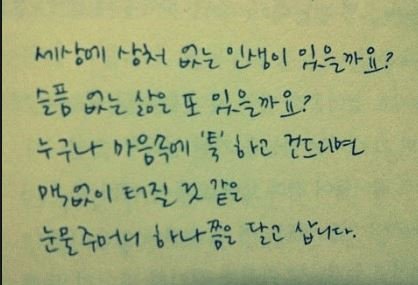 세상에 상처 없는 인생이 있을까요?
슬픔 없는 삶을 또 있을까요?
누구나 마음속에 '툭' 하고 건드리면
맥없이 터질 것 같은
눈물주머니 하나쯤을 달고 삽니다.